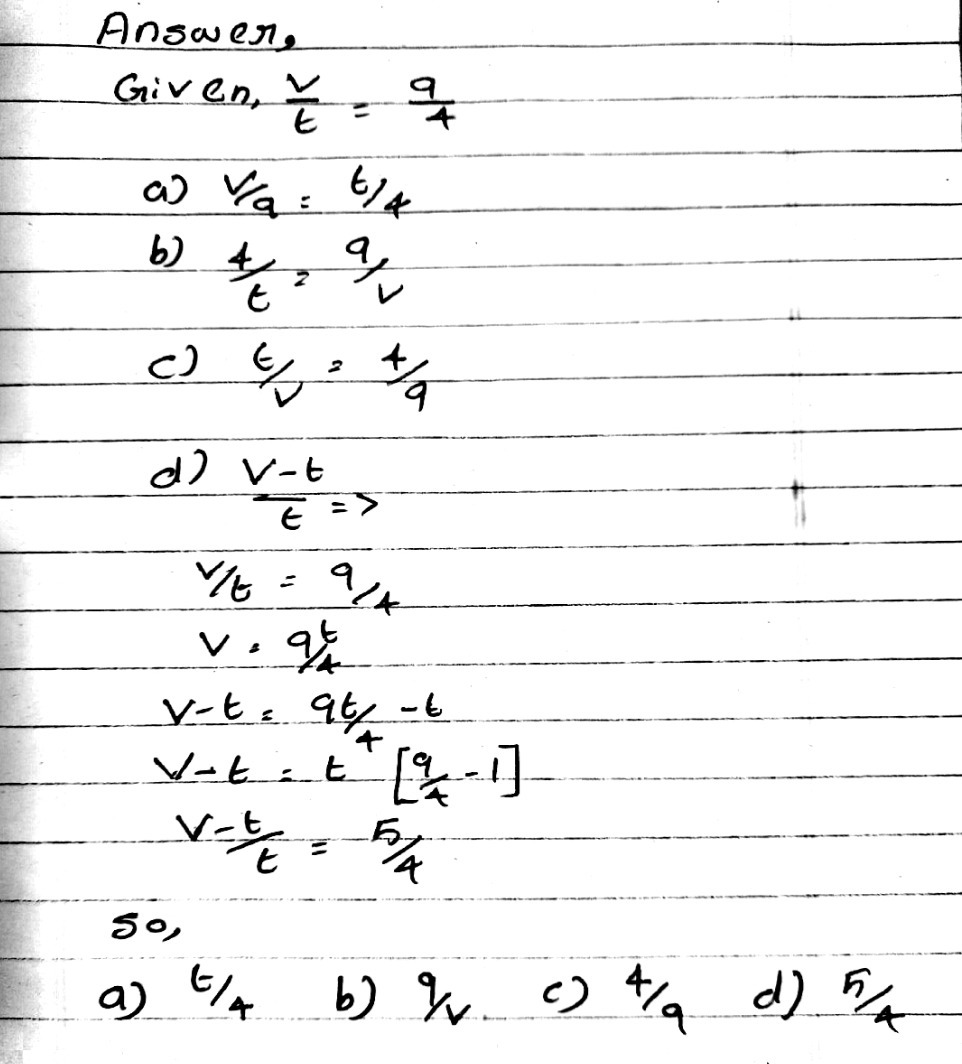 Answer,
Given, v/t = 9/4
a) v/9 = t/4
b) 4/t = 9/v
c) t/v = 4/9
d) v-t/t =>
v/t = 9/4
v = 9t/4
v-t = 9t/4 -t
v-t = t [9/4 -1]
v-t/t = 5/4
so,
a) t/4 b) 9/v c) 4/9 d) 5/4